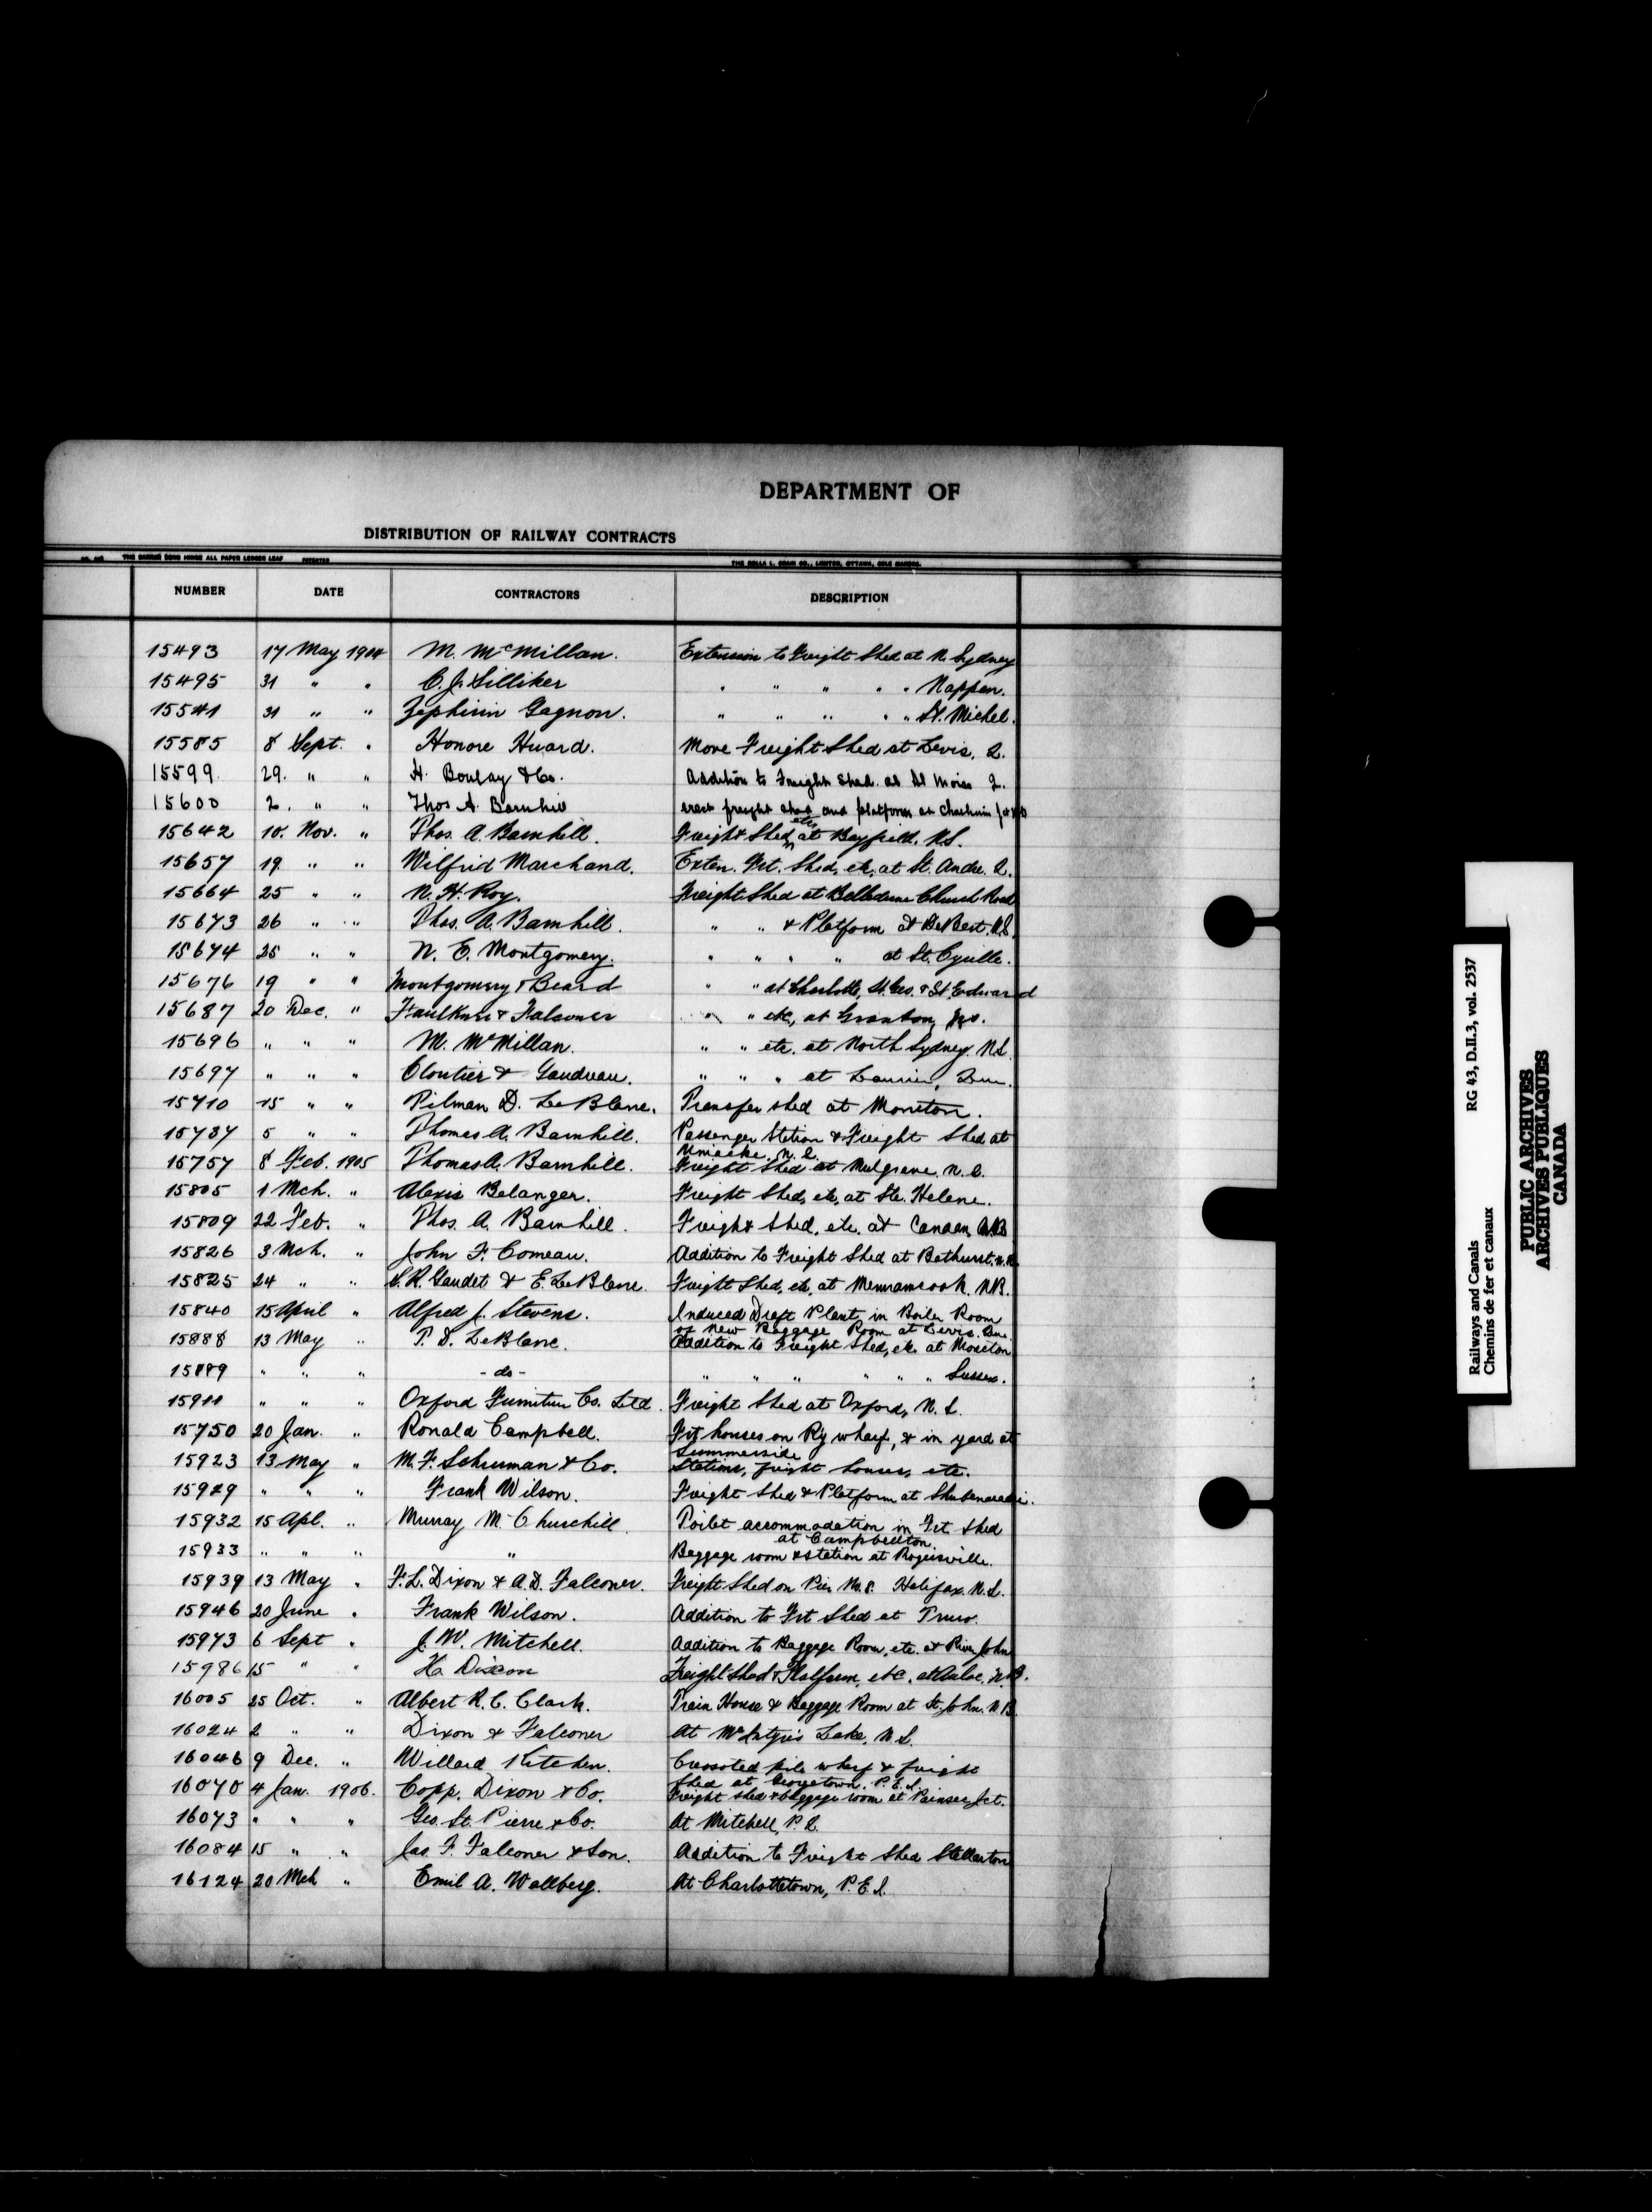 DEPARTMENT OF
DISTRIBUTION OF RAILWAY CONTRACTS
NUMBER DATE CONTRACTORS DESCRIPTION
15493 17 May 1904 M. McMillan. Extension to Freight Shed at N. Sydney
15495 31 " " C. J. Silliker " " " " " Nappan.
15541 31 " " Zephirin Gagnon. " " " " " St. Michel.
15585 8 Sept. " Honore Huard. Move Freight Shed at Levis, Q.
15599 29. " " H. Boulay & Co. Addition to Freight Shed at St Moise Q.
15600 2. " " Thos A. Barnhill erect freight shed and platform at
15642 10. Nov. " Thos. A. Barnhill. Freight Shed, etc at Bayfield, N.S.
15657 19. " " Wilfrid Marchand. Exten. Frt. Shed, etc, at St. Andre. Q.
15664 25 " " N. H. Roy. Freight Shed at Belledune Church Road
15673 26 " " Thos. A. Barnhill. " " & Platform at DeBert. N.S.
15674 25 " " N. E. Montgomery. " " " " at St. Cyrille.
15676 19 " " Montgomery & Beard " " at Charlotte, St. Geo. & St. Edward
15687 20 Dec. " Faulkner & Falconer " " etc, at Granton,
15696 " " " M. McMillan. " " etc. at North Sydney. N.S.
15697 " " " Cloutier & Gaudreau. " " " at Laurier, Que.
15710 15 " " Pilman D. LeBlanc. Transfer shed at Moncton.
15737 5 " " Thomas A. Barnhill. Passenger Station & Freight Shed at
Uniacke. N.S.
15757 8 Feb. 1905 Thomas A. Barnhill. Freight Shed at Mulgrave, N.S.
15805 1 Mch. " Alexis Belanger. Freight Shed, etc, at Ste. Helene.
15809 22 Feb. " Thos. A. Barnhill. Freight Shed, etc. at Canaan, N.B
15826 3 Mch. " John F. Comeau. Addition to Freight Shed at Bathurst. N.B.
15825 24 " " S. R. Gaudet & E. LeBlanc. Freight Shed, etc, at Memramcook. N.B.
15840 15 April " Alfred J. Stevens. Induced Draft Plant in Boiler Room
of New Baggage Room at Levis. Que.
15888 13 May " P. D. LeBlanc. Addition to Freight Shed, etc. at Moncton
15889 " " " - do - " " " " " " Sussex.
15911 " " " Oxford Furniture Co. Ltd. Freight Shed at Oxford, N.S.
15750 20 Jan. " Ronald Campbell. Frt houses on Ry wharf, & in yard at
Summerside
15923 13 May " M. F. Schurman & Co. Stations, freight houses, etc.
15929 " " " Frank Wilson. Freight Shed & Platform at Shubenacadie.
15932 15 Apl. " Murray M. Churchill. Toilet accommodation in Frt. Shed
at Campbellton.
15933 " " " " Baggage room & station at Rogersville.
15939 13 May " F. L. Dixon & A. D. Falconer. Freight Shed on Pier No. 8. Halifax. N.S.
15946 20 June " Frank Wilson. Addition to Frt Shed at Truro.
15973 6 Sept " J. W. Mitchell. Addition to Baggage Room, etc. at River John
15986 15 " " H. Dixon Freight Shed & Platform, etc. at Aulac, N.B.
16005 25 Oct. " Albert R. C. Clark. Train House & Baggage Room at St. John. N.B.
16024 2 " " Dixon & Falconer At McIntyre's Lake, N.S.
16046 9 Dec. " Willard Kitchen. Creosoted pile wharf & freight
Shed at Georgetown. P.E.I.
16070 4 Jan. 1906. Copp, Dixon & Co. Freight shed & baggage room at Painsec Jct.
16073 " " " Geo. St. Pierre & Co. At Mitchell, P.Q.
16084 15 " " Jas. F. Falconer & Son. Addition to Freight Shed Stellarton
16124 20 Mch " Emil A. Wallberg. At Charlottetown, P.E.I.
Railways and Canals RG 43, D.II.3, vol. 2537
Chemins de fer et canaux
PUBLIC ARCHIVES
ARCHIVES PUBLIQUES
CANADA